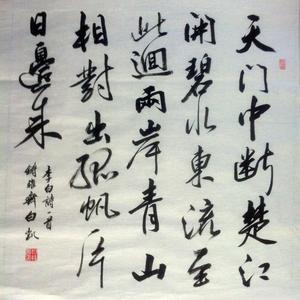 天门中断楚江
開碧水東流至
此迴兩岸青山
相對出孤帆片
日邊来
李白詩一首